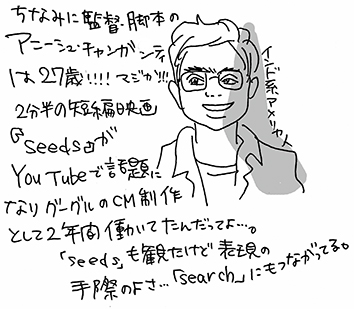 ちなみに監督・脚本の
アニーシュ・チャガンティ
は27歳!!!!マジか!!!
2分半の短編映画
『Seeds』が
YouTubeで話題に
なりグーグルのCM制作
として2年間働いてたんだってよ…。
「seeds」も観たけど表現の
手際のよさ…「search」にもつながってる。
インド系アメリカ人